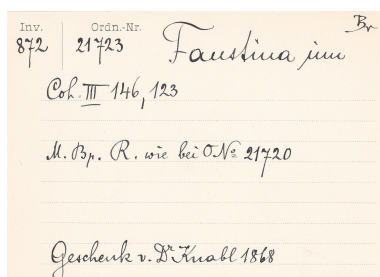 Inv. Ordn.-Nr. Br
872 21723 Faustina iun
Coh. III 146, 123
M. Bp. R. wie bei O.No 21720
Geschenk v. Dr Knabl 1868